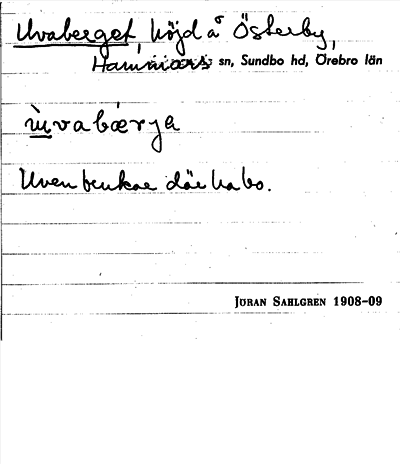 Uvaberget, höjd å Österby,
Hammars sn, Sundbo hd, Örebro län
ùvabǽrja
Uven brukae däe ha bo.
JÖRAN SAHLGREN 1908-09